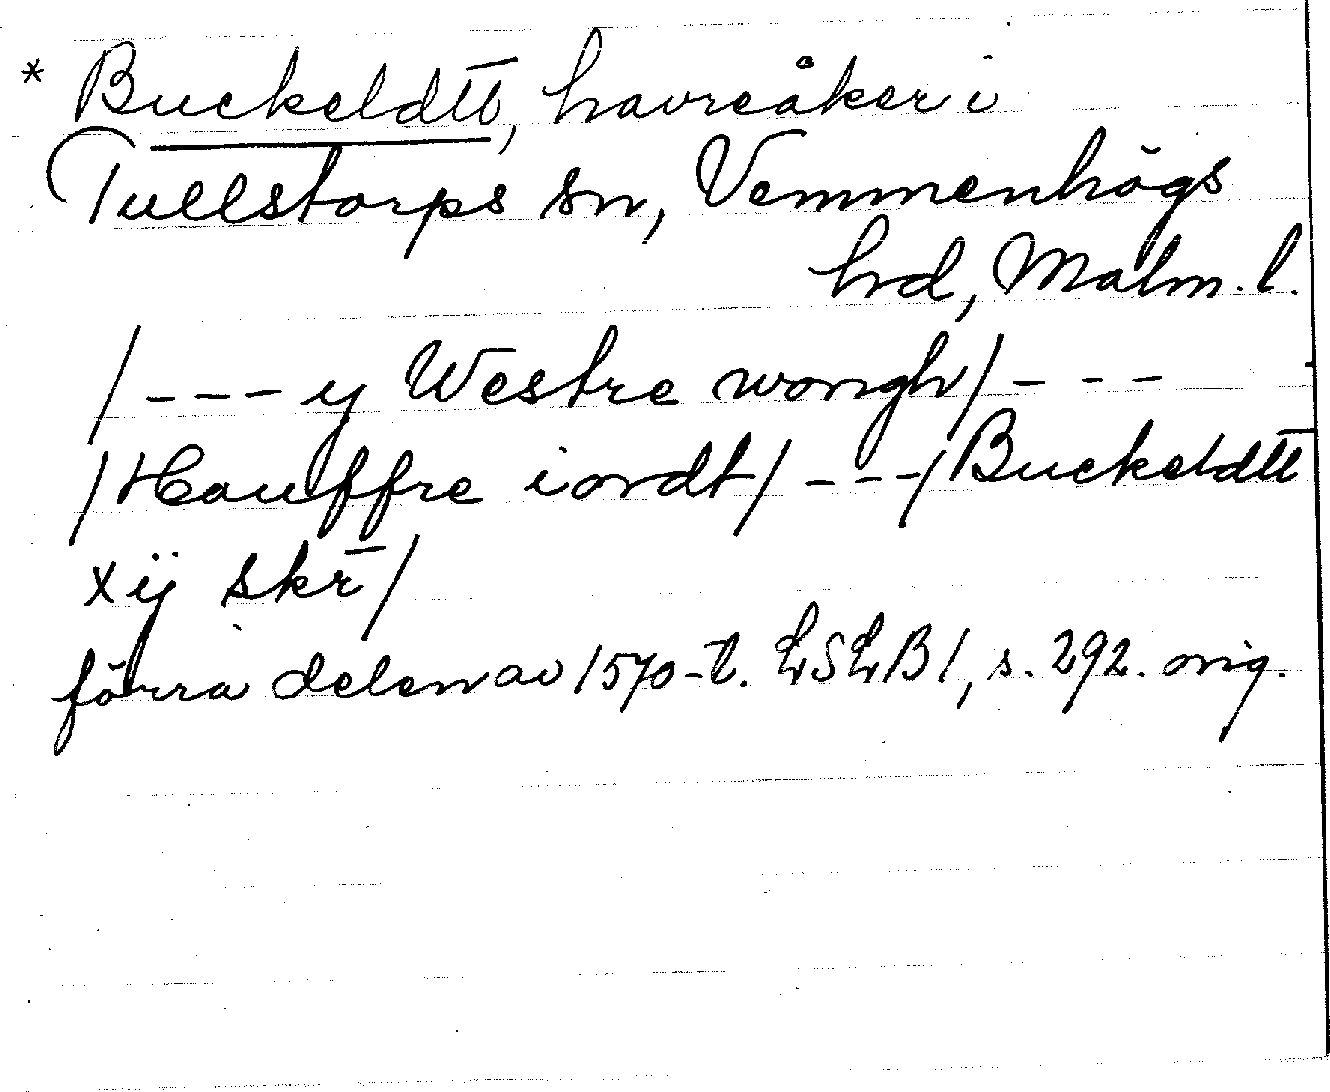 * Buckeldtt̅, havreåker i
Tullstorps sn, Vemmenhögs
hd, Malm. l.
/---y Westre wongh/---
/Hauffre iordt/---/Buckeldtt̅
xij skr̅/
förra delen av 1570-t. LSLB1, s. 292. orig.